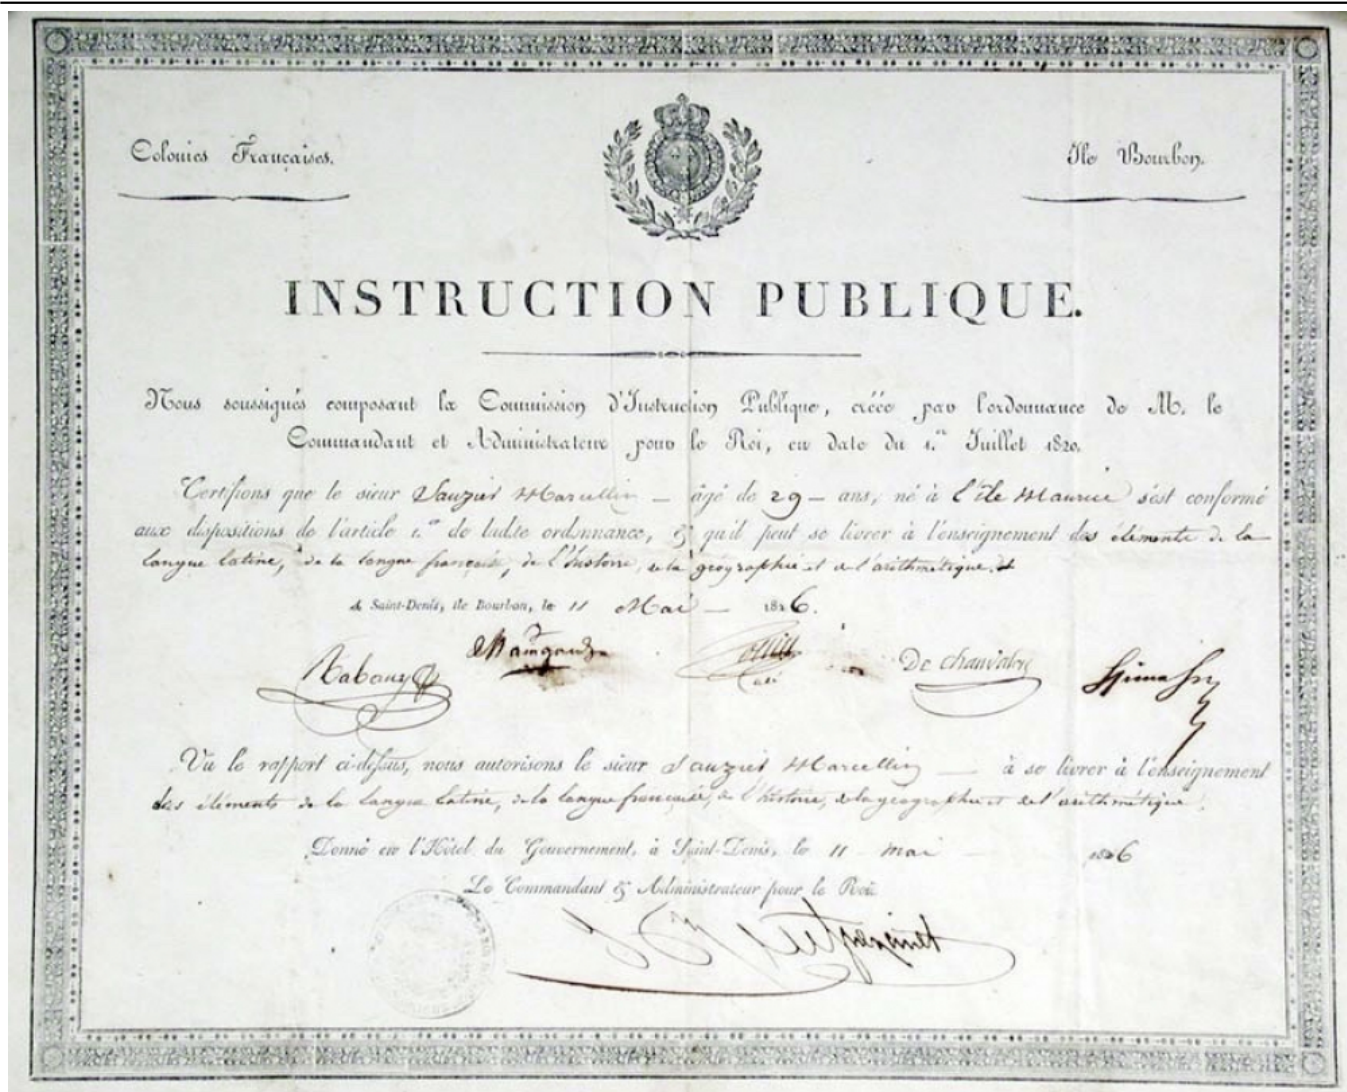 Colonies Françaises.
Ile Bourbon.
INSTRUCTION PUBLIQUE.
Nous soussignés composant la Commission d'Instruction Publique, créée par l'ordonnance de M. le
Commandant et Administrateur pour le Roi, en date du 1.er Juillet 1820.
Certifions que le sieur Sauzier Marcellin — âgé de 29 — ans, né à l'île Maurice s'est conformé
aux dispositions de l'article 1.er de ladite ordonnance, & qu'il peut se livrer à l'enseignement des éléments de la
langue latine, de la langue française, de l'histoire, de la géographie et de l'arithmétique.
A Saint-Denis, île Bourbon, le 11 Mai — 1826.
Rabany De Chanvalon
Vu le rapport ci-dessus, nous autorisons le sieur Sauzier Marcellin — à se livrer à l'enseignement
des éléments de la langue latine, de la langue française, de l'histoire, de la géographie et de l'arithmétique.
Donné en l'Hôtel du Gouvernement, à Saint-Denis, le 11 mai 1826
Le Commandant & Administrateur pour le Roi.